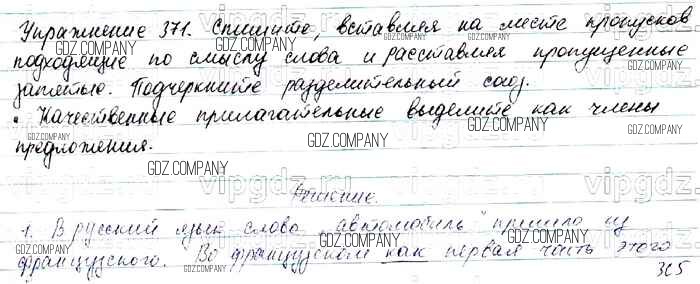 Упражнение 371. Спишите, вставляя на месте пропусков
подходящие по смыслу слова и расставляя пропущенные
запятые. Подчеркните разделительный союз.
• Качественные прилагательные выделите как члены
предложения.
Решение.
1. В русский язык слово "автомобиль" пришло из
французского. Во французском как первая часть этого
365
GDZ.COMPANY
GDZ.COMPANY
GDZ.COMPANY
GDZ.COMPANY
GDZ.COMPANY
GDZ.COMPANY
GDZ.COMPANY
GDZ.COMPANY
GDZ.COMPANY
GDZ.COMPANY
GDZ.COMPANY
GDZ.COMPANY
GDZ.COMPANY
GDZ.COMPANY
vipgdz.ru
vipgdz.ru